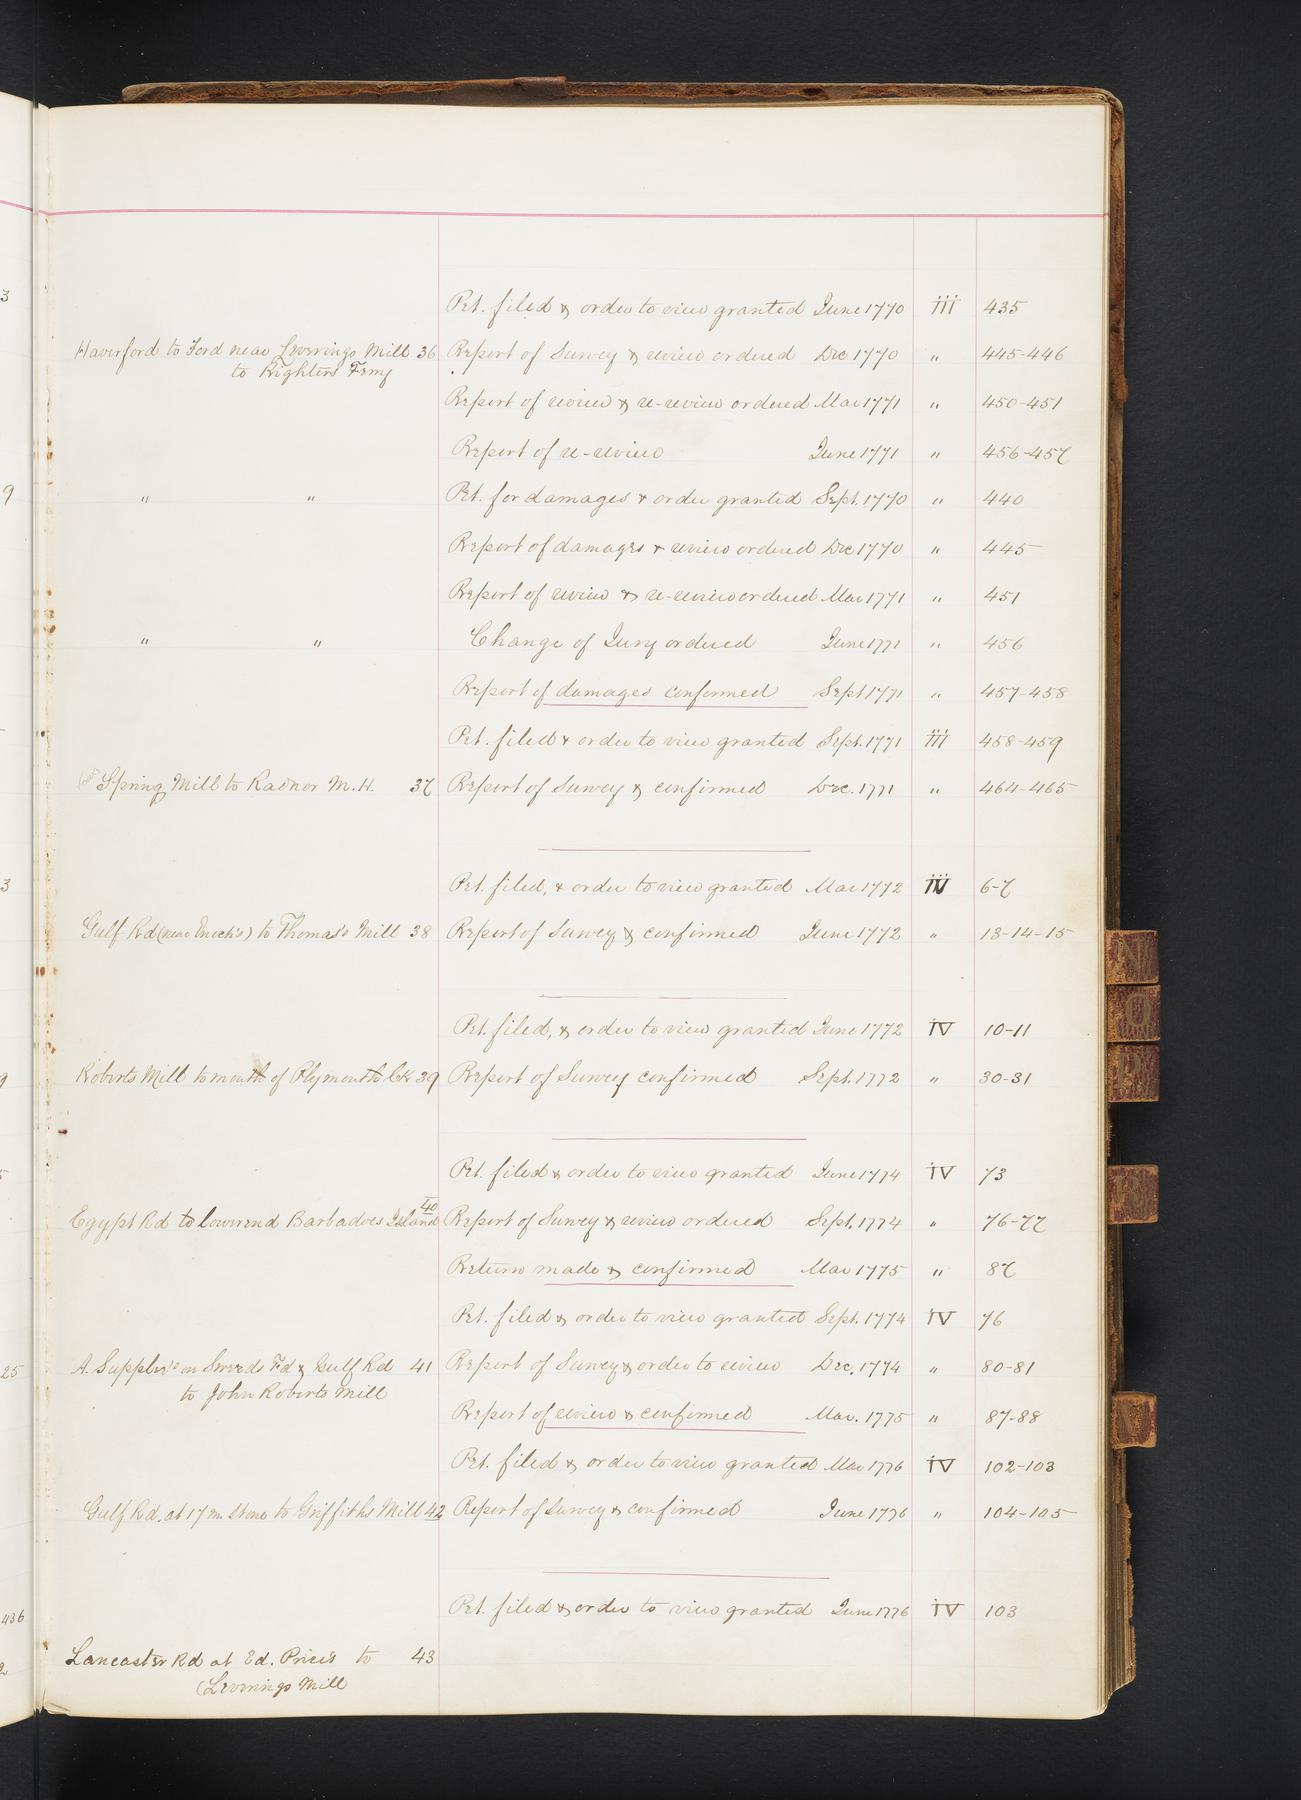 3
Pet. filed & order to view granted June 1770 iii 435
Haverford to Ford near Leverings Mill 36 Report of Survey & review ordered Dec 1770 " 445-446
to Righters Ferry
Report of review & re-review ordered Mar 1771 " 450-451
Report of re-review June 1771 " 456-457
9 " " Pet. for damages & order granted Sept. 1770 " 440
Report of damages & review ordered Dec 1770 " 445
Report of review & re-review ordered Mar 1771 " 451
" " Change of Jury ordered June 1771 " 456
Report of damages confirmed Sept 1771 " 457-458
Pet. filed & order to view granted Sept. 1771 iii 458-459
Spring Mill to Radnor M. H. 37 Report of Survey & confirmed Dec. 1771 " 464-465
3 Pet. filed, & order to view granted Mar 1772 IV 6-7
Gulf Rd (near Enoch's) to Thomas's Mill 38 Report of Survey & confirmed June 1772 " 13-14-15
Pet. filed, & order to view granted June 1772 IV 10-11
9 Roberts Mill to mouth of Plymouth Ck 39 Report of Survey confirmed Sept. 1772 " 30-31
Pet. filed & order to view granted June 1774 IV 73
Egypt Rd to lower end Barbadoes Island 40 Report of Survey & review ordered Sept. 1774 " 76-77
Return made & confirmed Mar 1775 " 87
Pet. filed & order to view granted Sept. 1774 IV 76
25 A. Supplee's on Sweeds Fd & Gulf Rd 41 Report of Survey & order to review Dec. 1774 " 80-81
to John Roberts Mill
Report of review & confirmed Mar. 1775 " 87-88
Pet. filed & order to view granted Mar 1776 IV 102-103
Gulf Rd. at 17 m Stone to Griffiths Mill 42 Report of Survey & confirmed June 1776 " 104-105
436 Pet. filed & order to view granted June 1776 IV 103
2 Lancaster Rd at Ed. Price's to 43
Leverings Mill
N
O
P
R